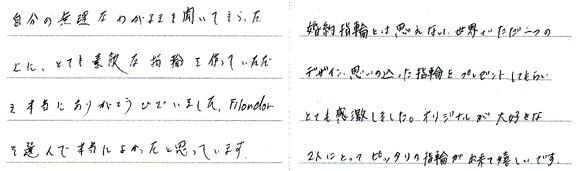 自分の無理なわがままを聞いてもらった
上に、とても素敵な指輪を作っていただ
き本当にありがとうございました。Filondor
を選んで本当によかったと思っています。
婚約指輪とは思えない、世界でただ一つの
デザイン、思いの込った指輪をプレゼントしてもらい
とても感激しました。オリジナルが大好きな
2人にとってピッタリの指輪が出来て嬉しいです。